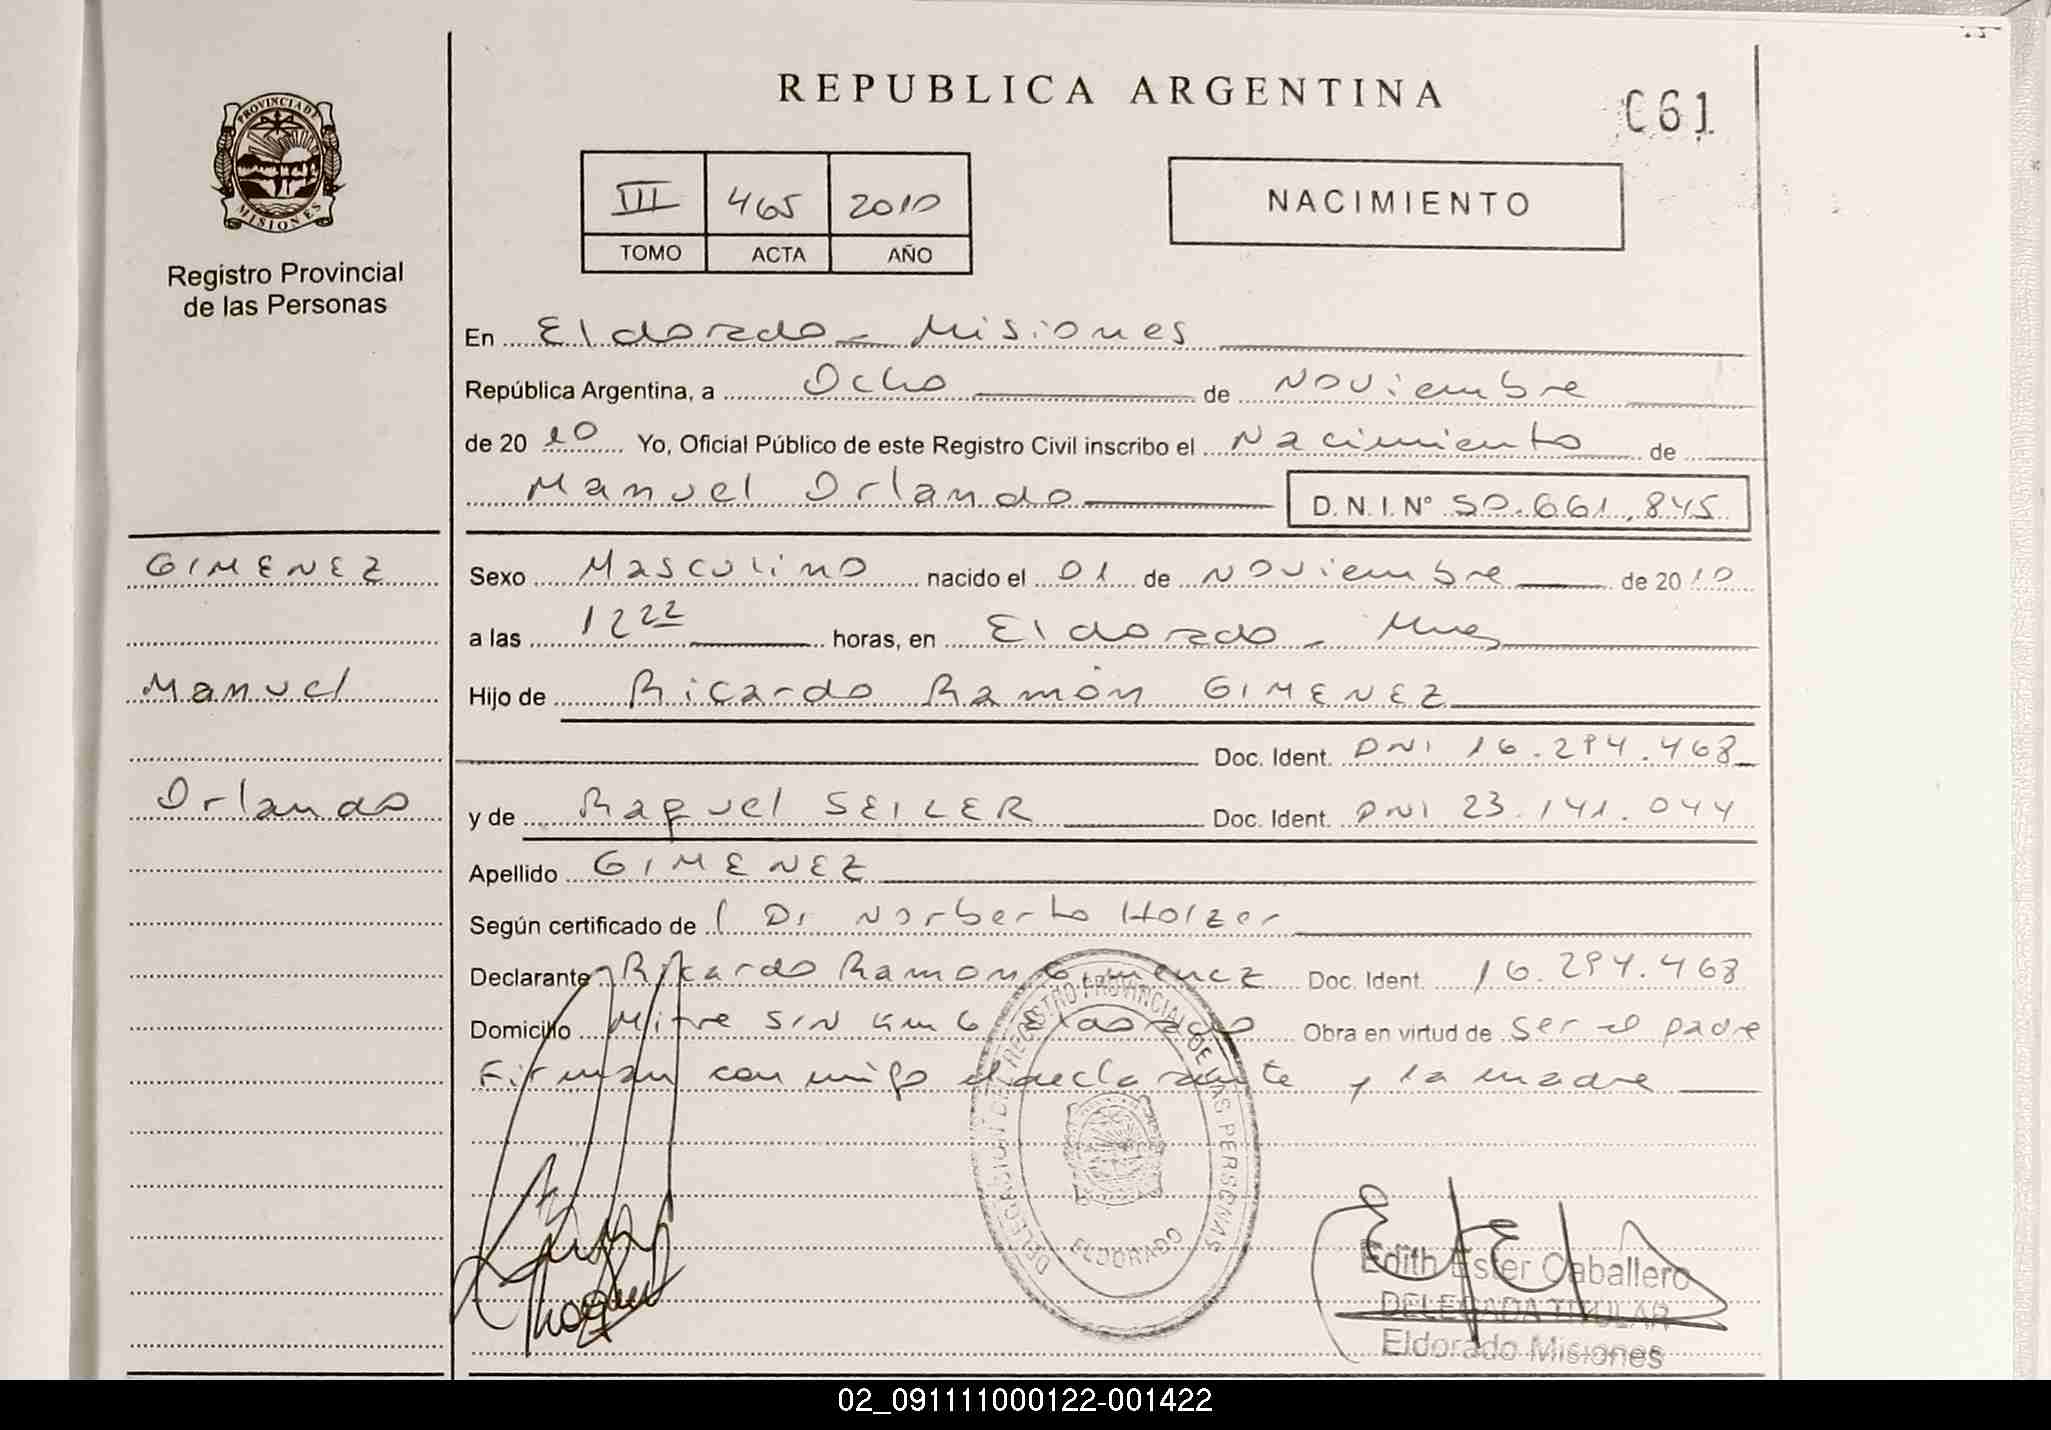 REPUBLICA ARGENTINA
C61
PROVINCIA DE
MISIONES
Registro Provincial
de las Personas
III 465 2010
TOMO ACTA AÑO
NACIMIENTO
En Eldorado - Misiones
República Argentina, a Ocho de Noviembre
de 2010 Yo, Oficial Público de este Registro Civil inscribo el Nacimiento de
Manuel Orlando D.N.I. Nº 50.661.845
GIMENEZ
Manuel
Orlando
Sexo Masculino nacido el 01 de Noviembre de 2010
a las 12 22 horas, en Eldorado - Mnes
Hijo de Ricardo Ramón GIMENEZ
Doc. Ident. DNI 16.294.468
y de Raquel SEILER Doc. Ident. DNI 23.141.044
Apellido GIMENEZ
Según certificado de Dr Norberto Holzer
Declarante Ricardo Ramon Gimenez Doc. Ident. 16.294.468
Domicilio Mitre S/N Km 6 Eldorado Obra en virtud de ser el padre
Firman con migo el declarante y la madre
DELEGACION DE REGISTRO PROVINCIAL DE LAS PERSONAS
ELDORADO
Edith Ester Caballero
DELEGADA TITULAR
Eldorado Misiones
02_091111000122-001422